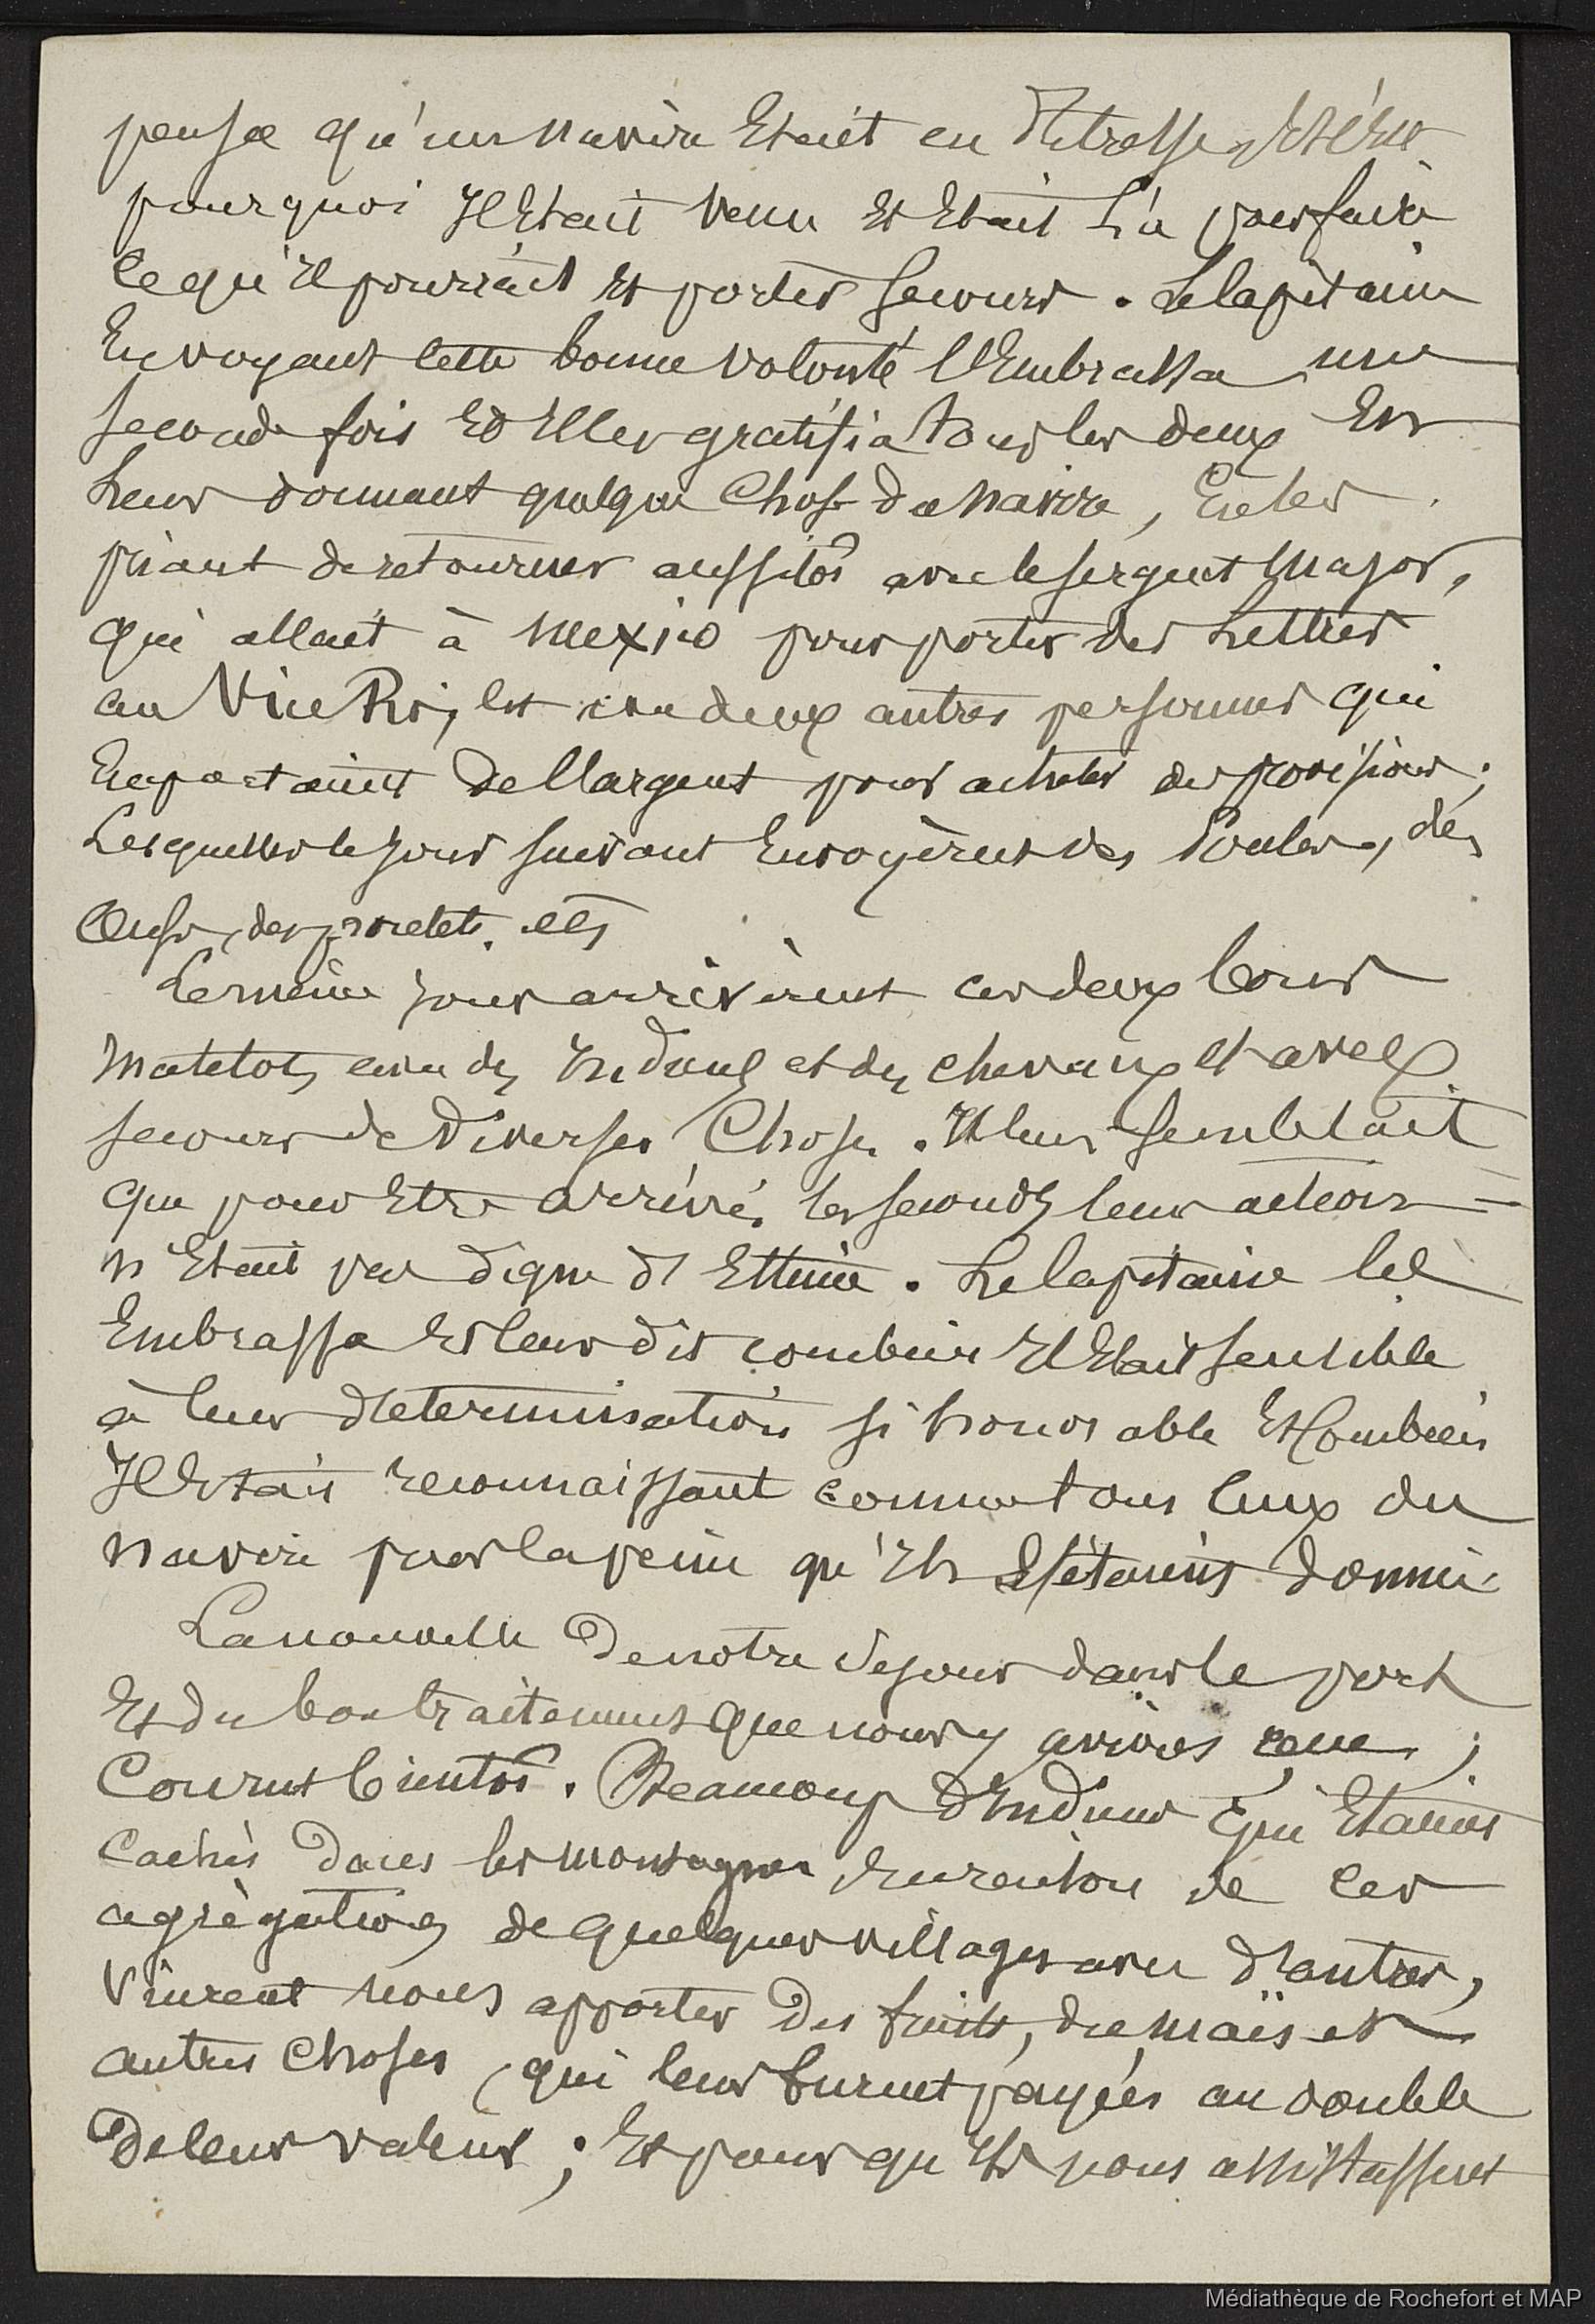 pensée qu'un navire Etait en Détresse,
pourquoi Il Etait venu Et Etait Là pour faire
ce qu'Il pourrait Et porter secours. Le Capitaine
En voyant cette bonne volonté l'Embrassa une
seconde fois Et Il les gratifia tous les deux En
Leur donnant quelque chose du navire, En les
priant de retourner aussitôt avec le sergent Major,
qui allait à Mexico pour porter des Lettres
au Vice Roi, et avec deux autres personnes qui
Emportaient de l'argent pour acheter des provisions;
Lesquelles le jour suivant Envoyèrent des Poules, des
Œufs, des poulets. etc
Le même jour arrivèrent ces deux bons
Matelots avec des Indiens et des chevaux et avec
secours de Diverses Choses. Il leur semblait
que pour Etre arrivés les seconds leur action
n'Etait pas digne d'Estime. Le Capitaine les
Embrassa Et leur dit combien Il Etait sensible
à leur détermination si honorable Et Combien
Il Etait reconnaissant comme tous ceux du
navire pour la peine qu'Ils s'étaient donnée.
La nouvelle De notre séjour dans le port
Et du bon traitement que nous y avions reçu;
Courut bientôt. Beaucoup d'Indiens qui Etaient
Cachés Dans les montagnes En raison de ces
agrégations de quelques villages avec d'autres,
Vinrent nous apporter Des fruits, du maïs et
autres Choses, qui leur furent payées au double
De leur valeur; Et pour qu'Ils nous assistassent
Médiathèque de Rochefort et MAP